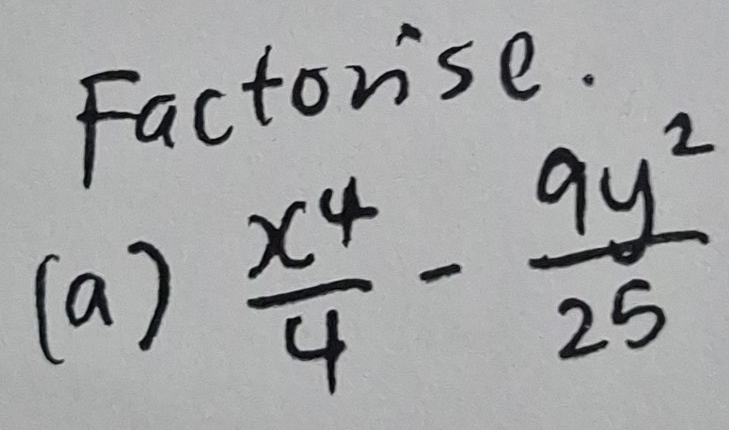 Factorise.
(a) x⁴/4 - 9y²/25